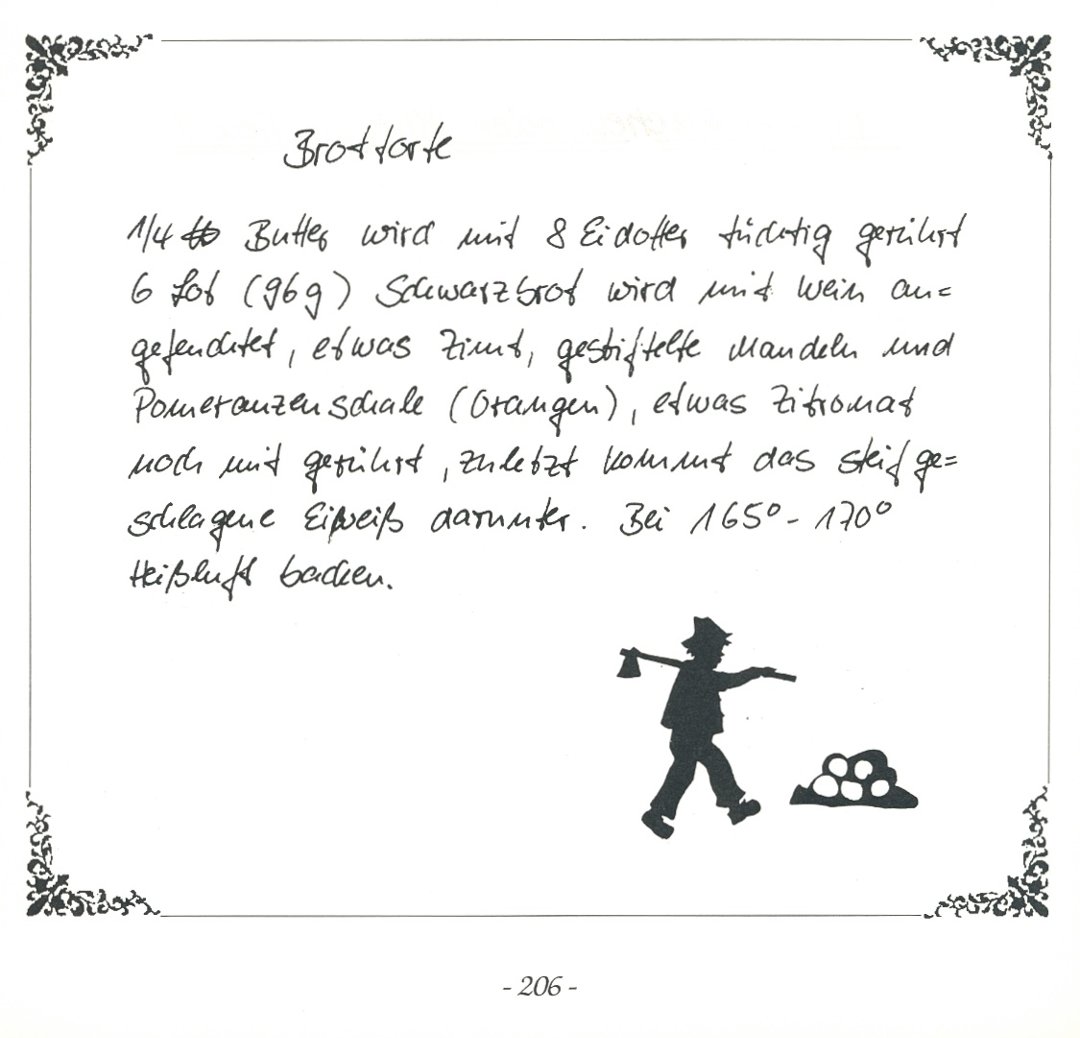 Brottorte
1/4 ℔ Butter wird mit 8 Eidotter tüchtig gerührt
6 Lot (96g) Schwarzbrot wird mit Wein an=
gefeuchtet, etwas Zimt, gestiftelte Mandeln und
Pomeranzenschale (Orangen), etwas Zitronat
noch mit gerührt, zuletzt kommt das steif ge=
schlagene Eiweiß darunter. Bei 165° - 170°
Heißluft backen.
- 206 -